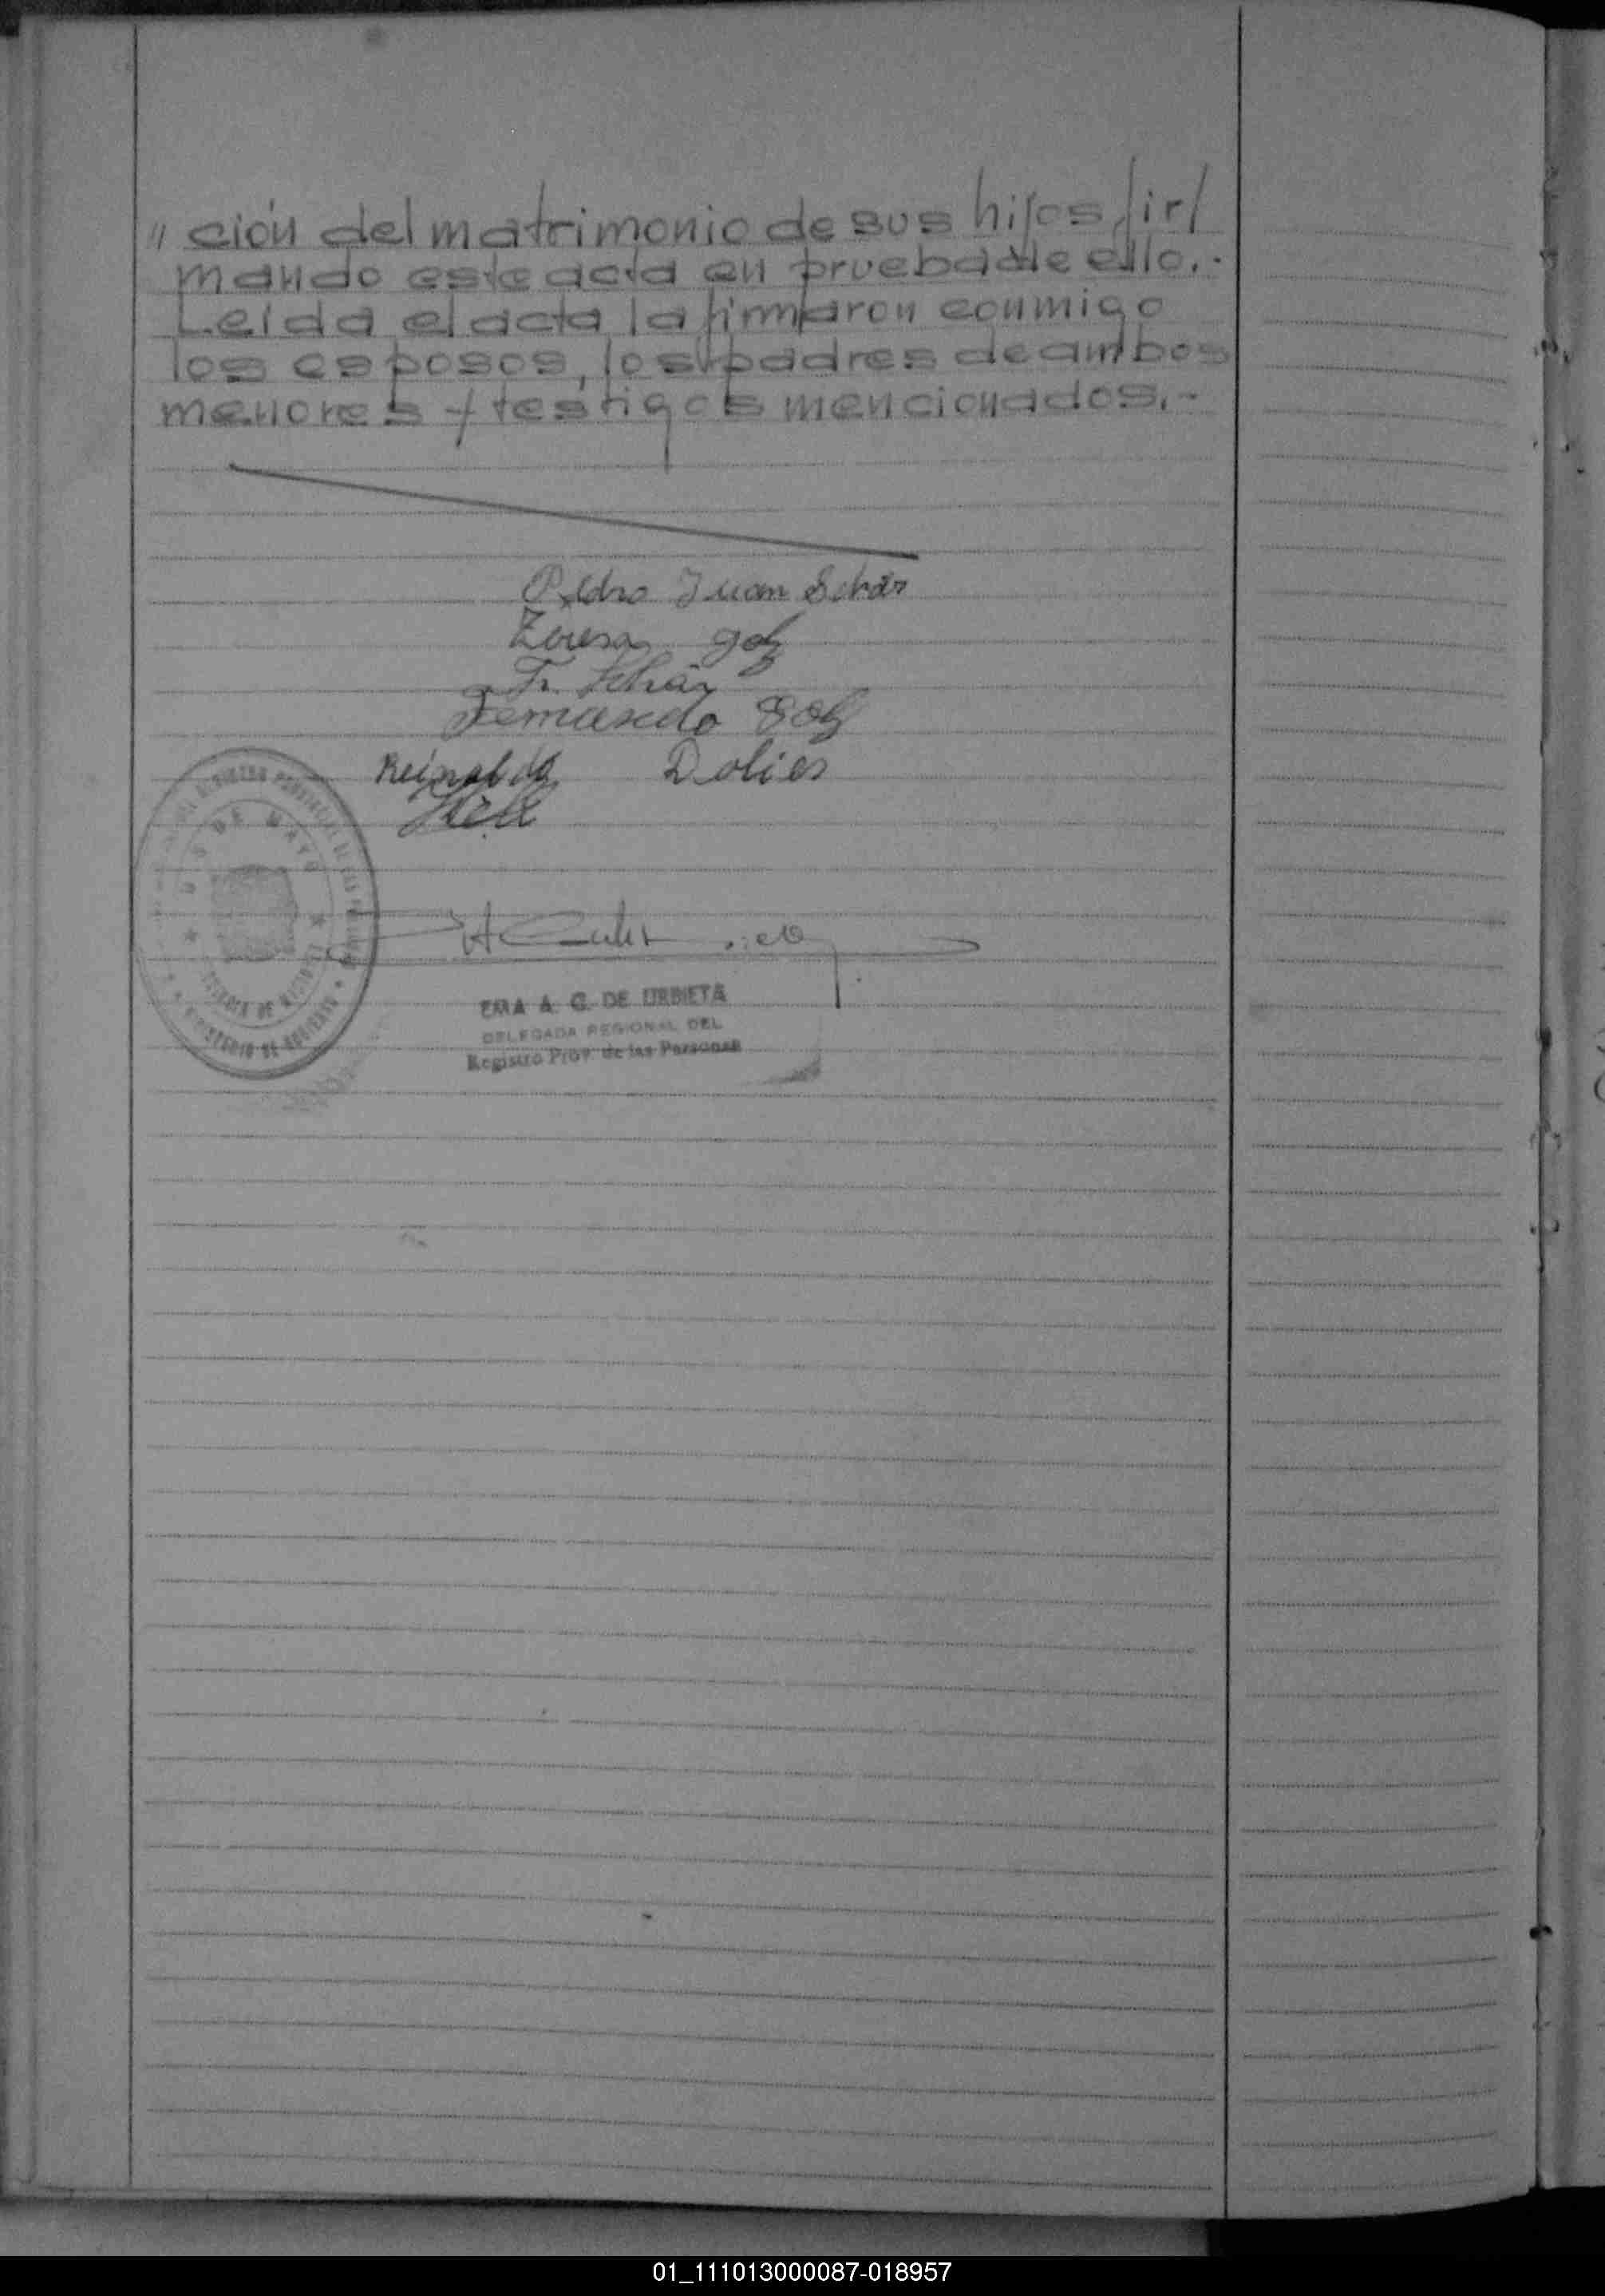 " ción del matrimonio de sus hijos, fir/
mando este acta en prueba de ello.-
Leida el acta la firmaron conmigo
los esposos, los padres de ambos
menores y testigos mencionados.-
Pedro Juan Schär
Teresa
Fr. Schär
Fernando
Reinaldo Dolies
EMA A. G. DE URBIETA
DELEGADA REGIONAL DEL
Registro Prov. de las Personas
25 DE MAYO
MINISTERIO DE GOBIERNO
01_111013000087-018957